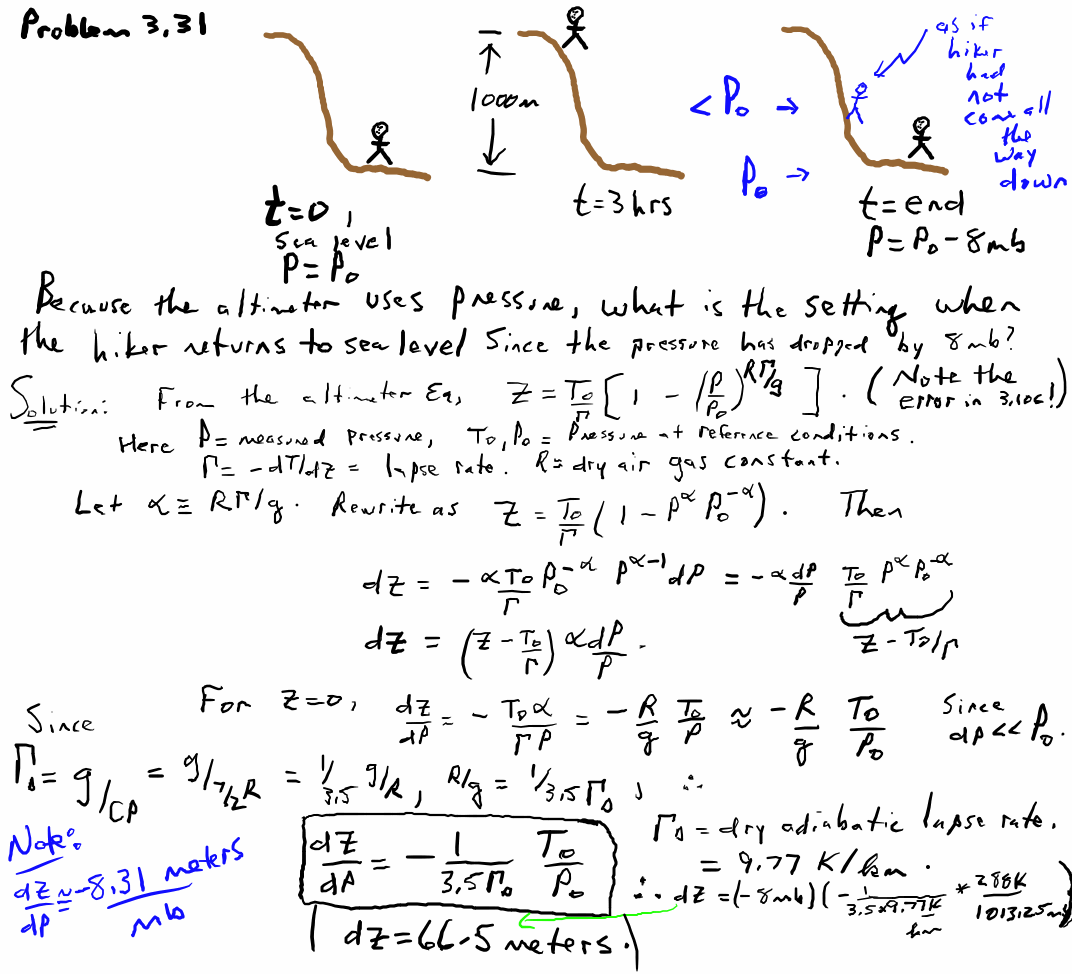 Problem 3.31
1000m
< P₀ →
P₀ →
as if
hiker
had
not
come all
the
way
down
t=0,
sea level
P = P₀
t=3 hrs
t=end
P = P₀ - 8mb
Because the altimeter uses pressure, what is the setting when
the hiker returns to sea level since the pressure has dropped by 8mb?
Solution: From the altimeter Eq, Z = T₀/Γ [ 1 - (P/P₀)^(RΓ/g) ]. (Note the error in 3.106!)
Here P = measured pressure, T₀, P₀ = Pressure at reference conditions.
Γ = -dT/dz = lapse rate. R = dry air gas constant.
Let α ≡ RΓ/g. Rewrite as Z = T₀/Γ (1 - P^α P₀^-α). Then
dz = - αT₀/Γ P₀^-α P^(α-1) dP = -α dP/P T₀/Γ P^α P₀^-α
Z - T₀/Γ
dz = (Z - T₀/Γ) α dP/P.
For Z=0, dz/dP = - T₀α/ΓP = - R/g T₀/P ≈ - R/g T₀/P₀ Since dP << P₀.
Since
Γ₀ = g/CP = g/7/2R = 1/3.5 g/R, R/g = 1/3.5Γ₀, ∴
dz/dP = - 1/3.5Γ₀ T₀/P₀
Γ₀ = dry adiabatic lapse rate.
= 9.77 K/km.
∴ dz = (-8mb) (- 1/3.5*9.77K/km * 288K/1013.25mb)
dz = 66.5 meters.
Note:
dz/dP ≈ -8.31 meters/mb